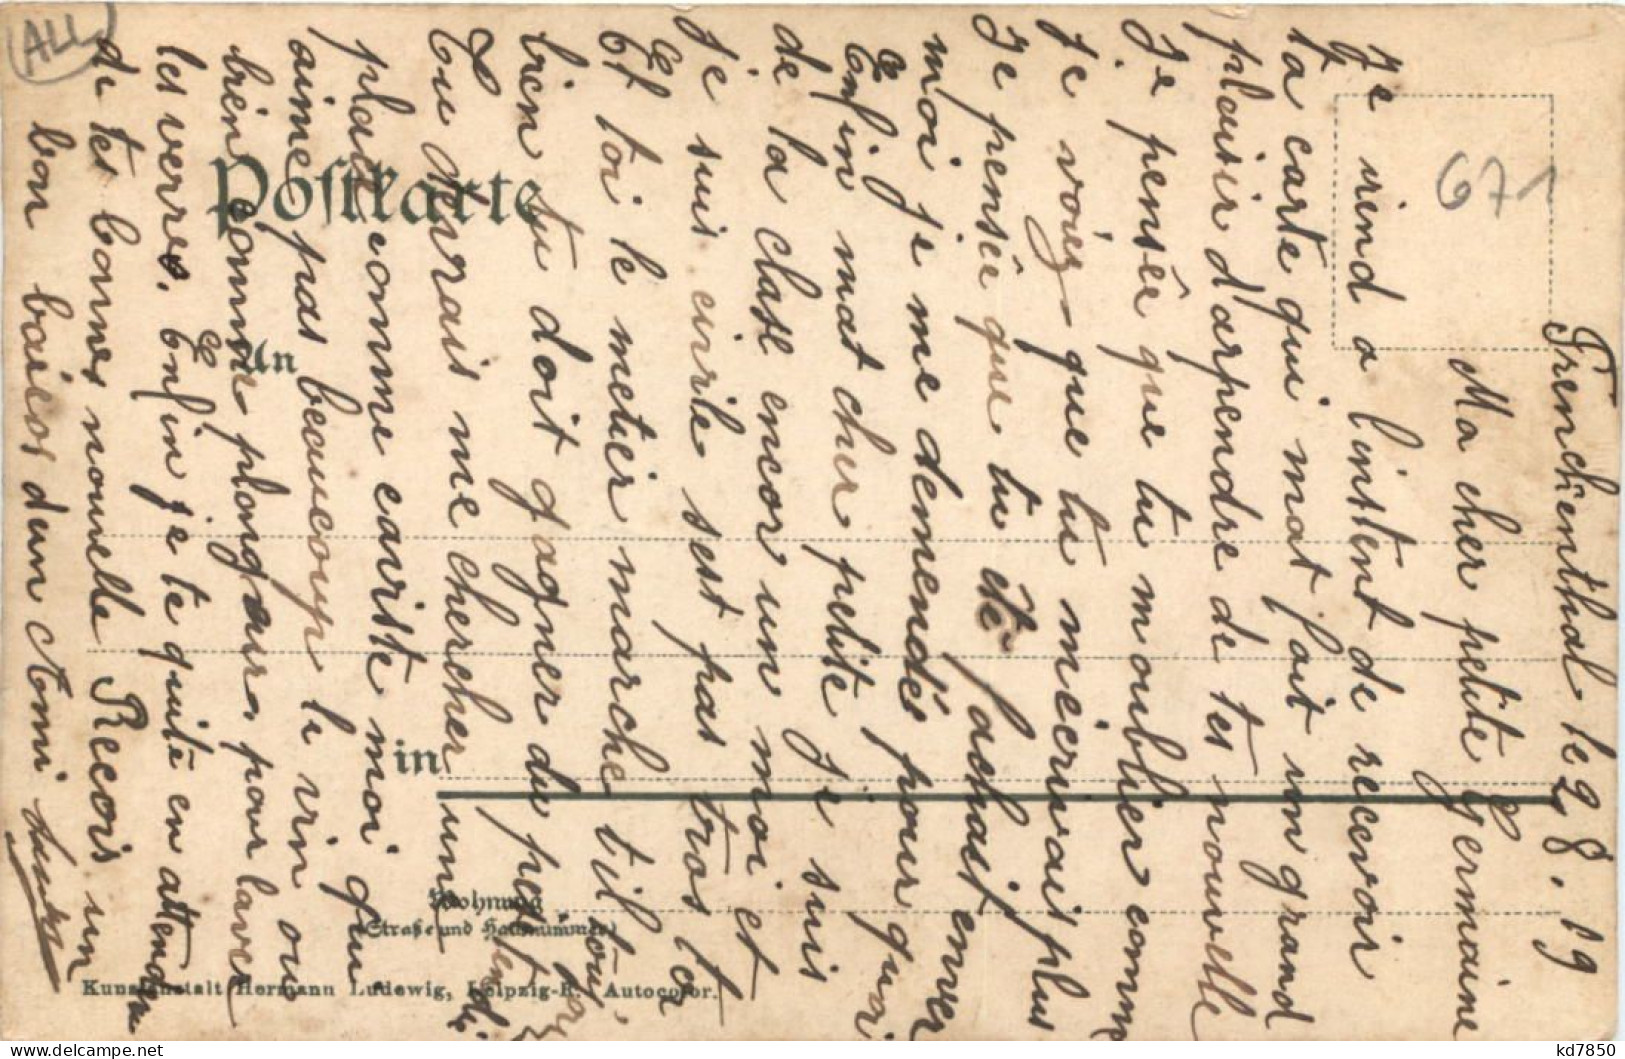 Frenchienthal le 29. 8. 19
Ma cher petite Germaine
Je viend a l'instent de recevoir
ta carte qui mat fait un grand
plaisir d'arpendre de tes nouvelle
Je pensée que tu moublier comme
Je voiez que tu mécrivais plus
Je pensée que tu été fachait enver
moi je me demendés pour quoi
Enfin mat cher petite Je suis
de la clase encor un moi et
je suis cirile sest pas tros to
Et toi le metier marche til tou,
bien tu doit gagner du pet
tu devrais me chercher une
place comme cariste moi qui
aime pas beaucoup le vin ou
bien comme plongeur, pour laver
les verres. Enfin je te quite en attenden
de tes bonnes nouvelle Recois un
bon baiées dun Ami
ALL
671
Postkarte
An
in
Wohnung
(Straße und Hausnummer)
Kunstanstalt Hermann Ludewig, Leipzig-R. Autocolor.
kd7850